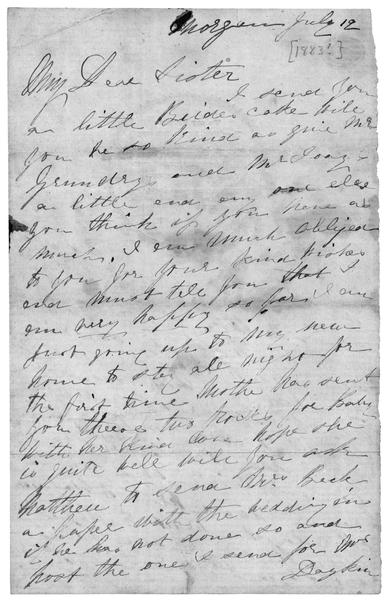 Morgan July 12
[1883?]
My Dear Sister
I send you
a little Brides cake will
you be so kind as give Mr
Grundy and Mr
a little and any one else
you think if you have as
much. I am much obliged
to you for your kind wishes
and must tell you that I
am very happy so far. I am
just going up to my new
home to stay all night for
the first time Mother has sent
you these two for baby
with her kind love hope she
is quite well will you ask
Matthew to send Mrs Beck
a paper with the wedding in
if he has not done so and
post the one I send for Mrs
Daykin